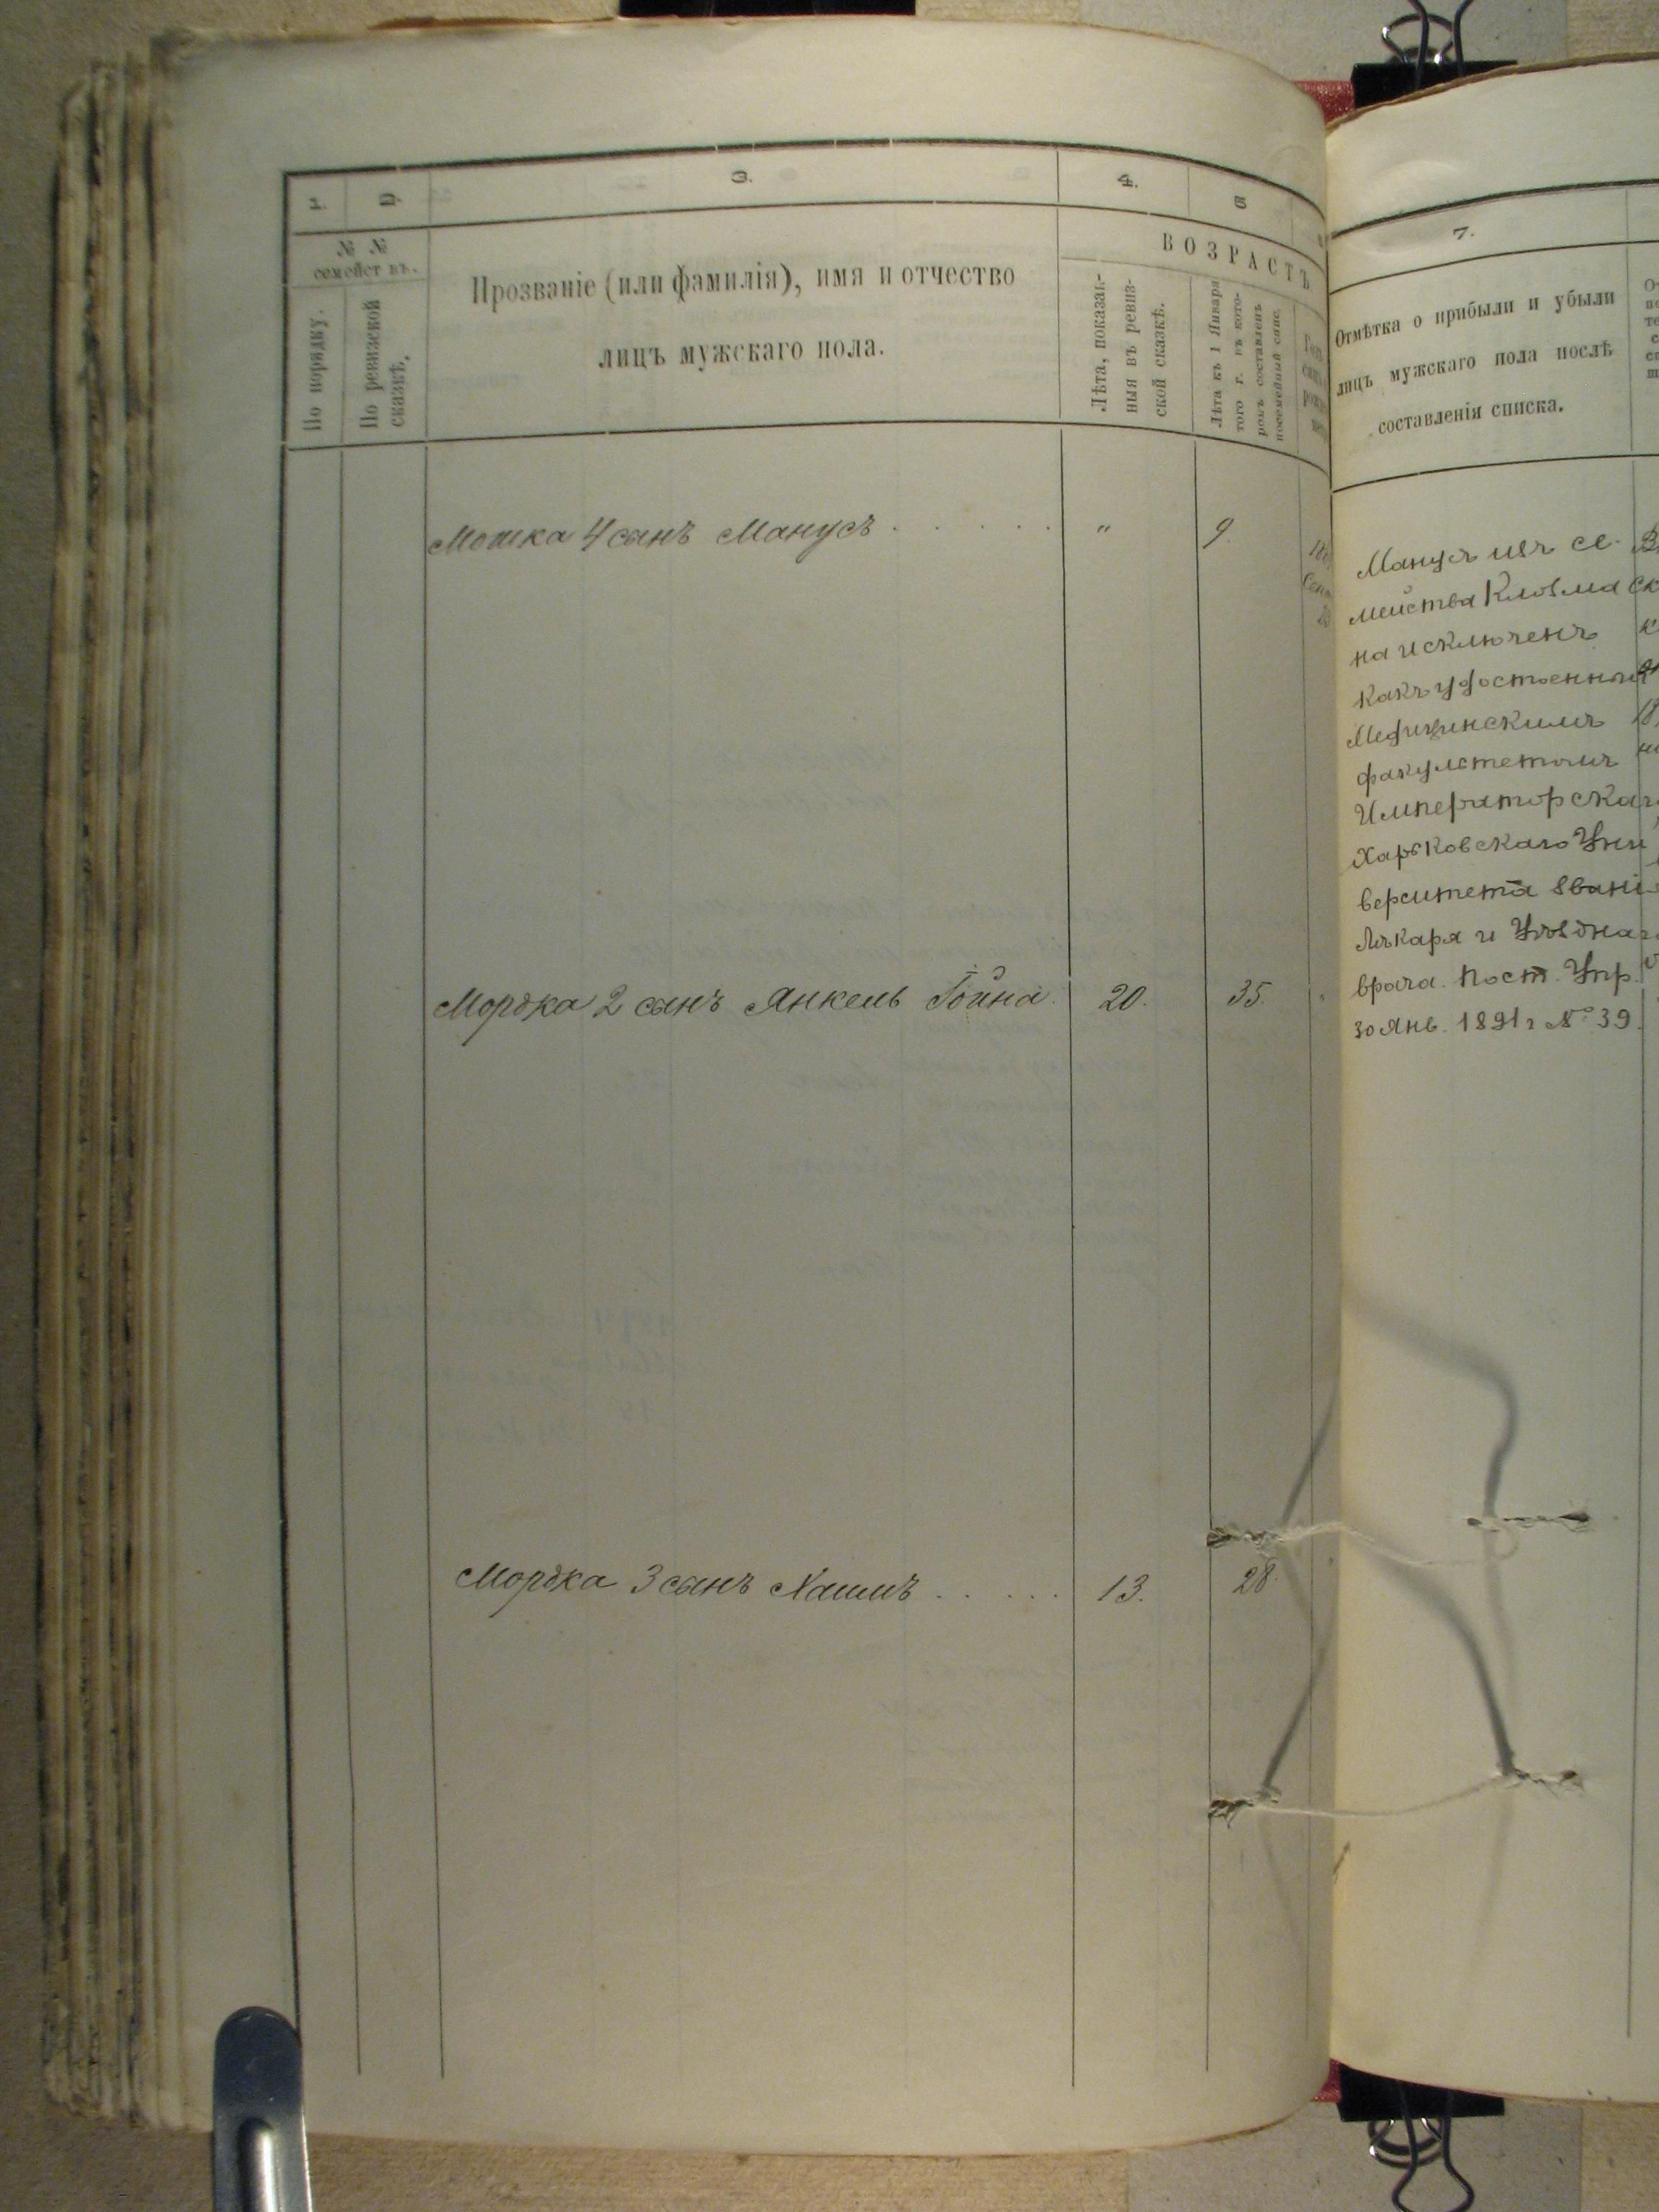 1.
2.
3.
4.
5
№ №
семействъ.
По порядку.
По ревизской
сказкѣ.
Прозваніе (или фамилія), имя и отчество
лицъ мужскаго пола.
ВОЗРАСТЪ
Лѣта, показан-
ныя въ ревиз-
ской сказкѣ.
Лѣта къ 1 Января
того г. въ кото-
ромъ составленъ
посемейный спис.
Мошка 4 сынъ Манусъ . . . . . " 9.
Мордка 2 сынъ Янкель Гойна. 20. 35.
Мордка 3 сынъ Хаимъ . . . . . 13. 28.
7.
Отмѣтка о прибыли и убыли
лицъ мужскаго пола послѣ
составленія списка.
Манусъ изъ се-
мейства
на исключенъ
какъ удостоенный
Медицинскимъ
факультетомъ
Императорскаго
Харьковскаго Уни
верситета званія
Лѣкаря и Уѣзднаго
врача. Пост. Упр.
30 Янв. 1891 г № 39.